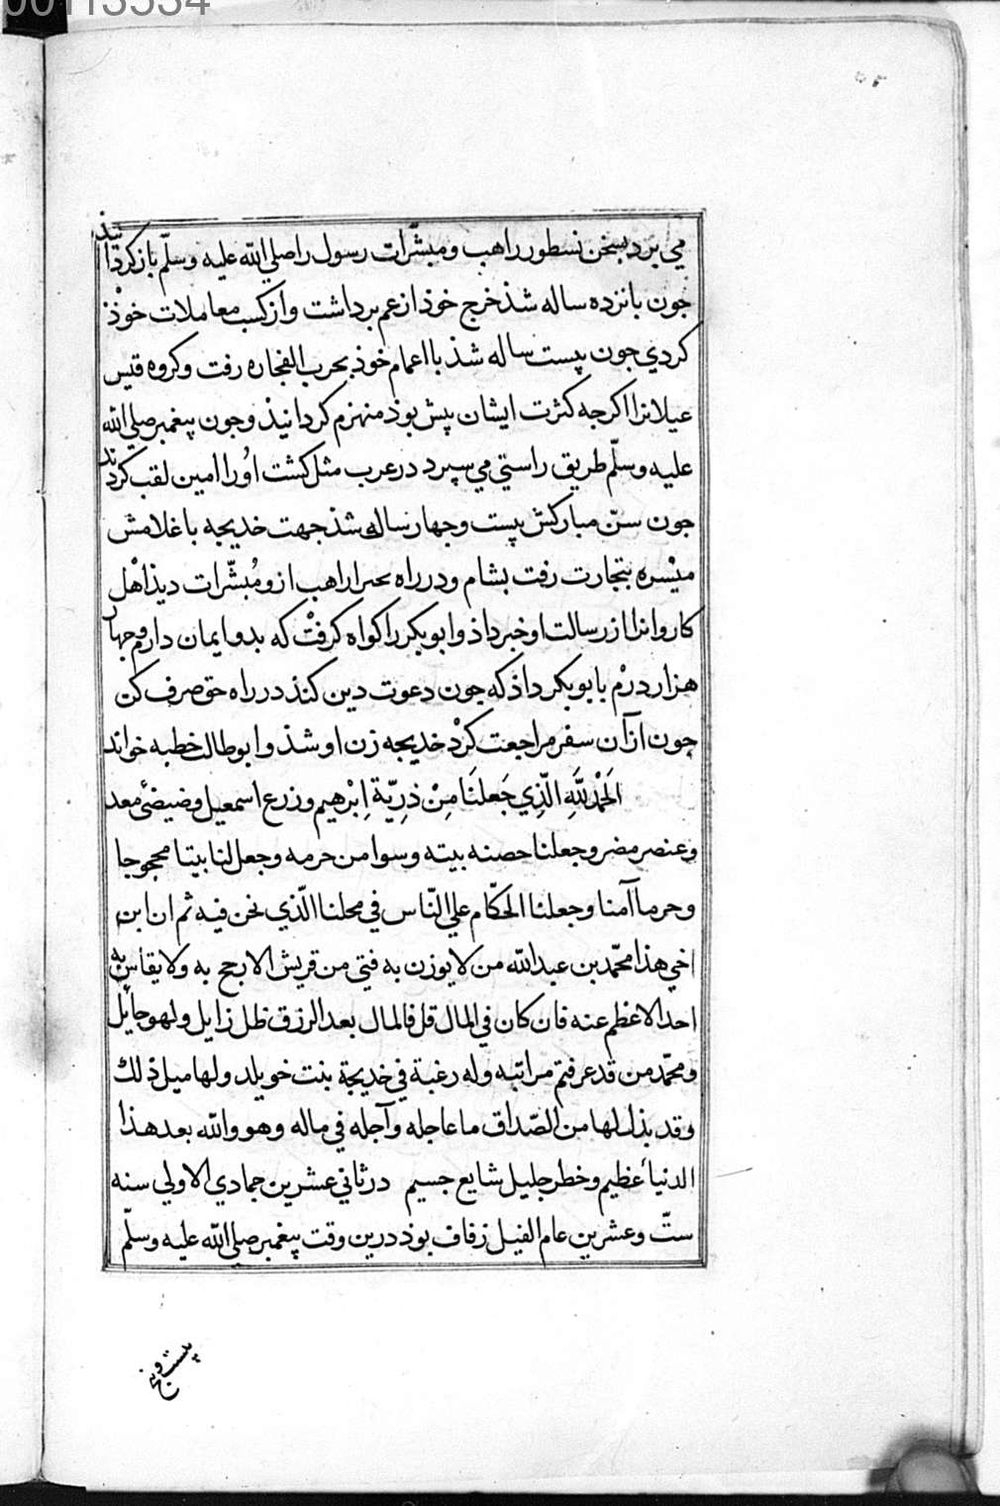 00113534
می برد بسخن نسطور راهب و مبشّرات رسول را صلي الله عليه وسلّم باز کردانیذ
جون بانزده ساله شذ خرج خوذ از عم برداشت و از کسب معاملات خوْذ
کردي جون بیست ساله شذ با اعمام خوذ بحرب الفجاره رفت و کروه قیس
عیلانرا اکرجه کثرت ایشان بیش بوذ منهزم کردانیذ و جون پیغمبر صلي الله
عليه وسلّم طریق راستي مي سپرد در عرب مثل کشت اوُ را امین لقب کردند
جون سنّ مبارکش بیست و جهار ساله شذ جهت خدیجه با غلامش
میْسره بتجارت رفت بشام و در راه بحیرا راهب ازو مُبشّرات دیذ اهْل
کاروانرا از رسالت او خبر داذ و ابو بکر را کواه کرفتْ که بدو ایمان دارم و جهار
هزار درْم بابوبکر داذ که جون دعوت دین کنذ در راه حق صرف کن
جون از آن سفر مراجعت کرْد خدیجه زن او شذ و ابو طالب خطبه خواند
اَلحَمْدُ للّهِ الّذِي جَعلنَا مِنْ ذرِيّةِ اِبْرهيم وزرع اسمعيل وضيضئ معد
وعنصر مضر وجعلنا حصنه بيته وسوا من حرمه وجعل لنا بيتا محجوجا
وحرما آمنا وجعلنا الحكّام علي النّاس في محلنا الّذي نحن فيه ثم ان ابن
اخي هذا محمّد بن عبد الله من لا يوزن به فتي من قريش الا رجح به ولا يقاس به
احد الا عظم عنه فان كان في المال قل فالمال بعد الرزق ظل زايل ولهو جائل
ومحمّد من قد عرفتم مراتبه وله رغبة في خديجة بنت خويلد ولها ميل ذلك
وقد بذل لها من الصّداق ما عاجله وآجله في ماله وهو والله بعد هذا
الدنيا عظيم وخطر جليل شايع جسيم در ثاني عشرین جمادي الاولي سنه
ستّ وعشرین عام الفیل زفاف بوذ درین وقت پیغمبر صلي الله عليه وسلّم
بیست و پنج